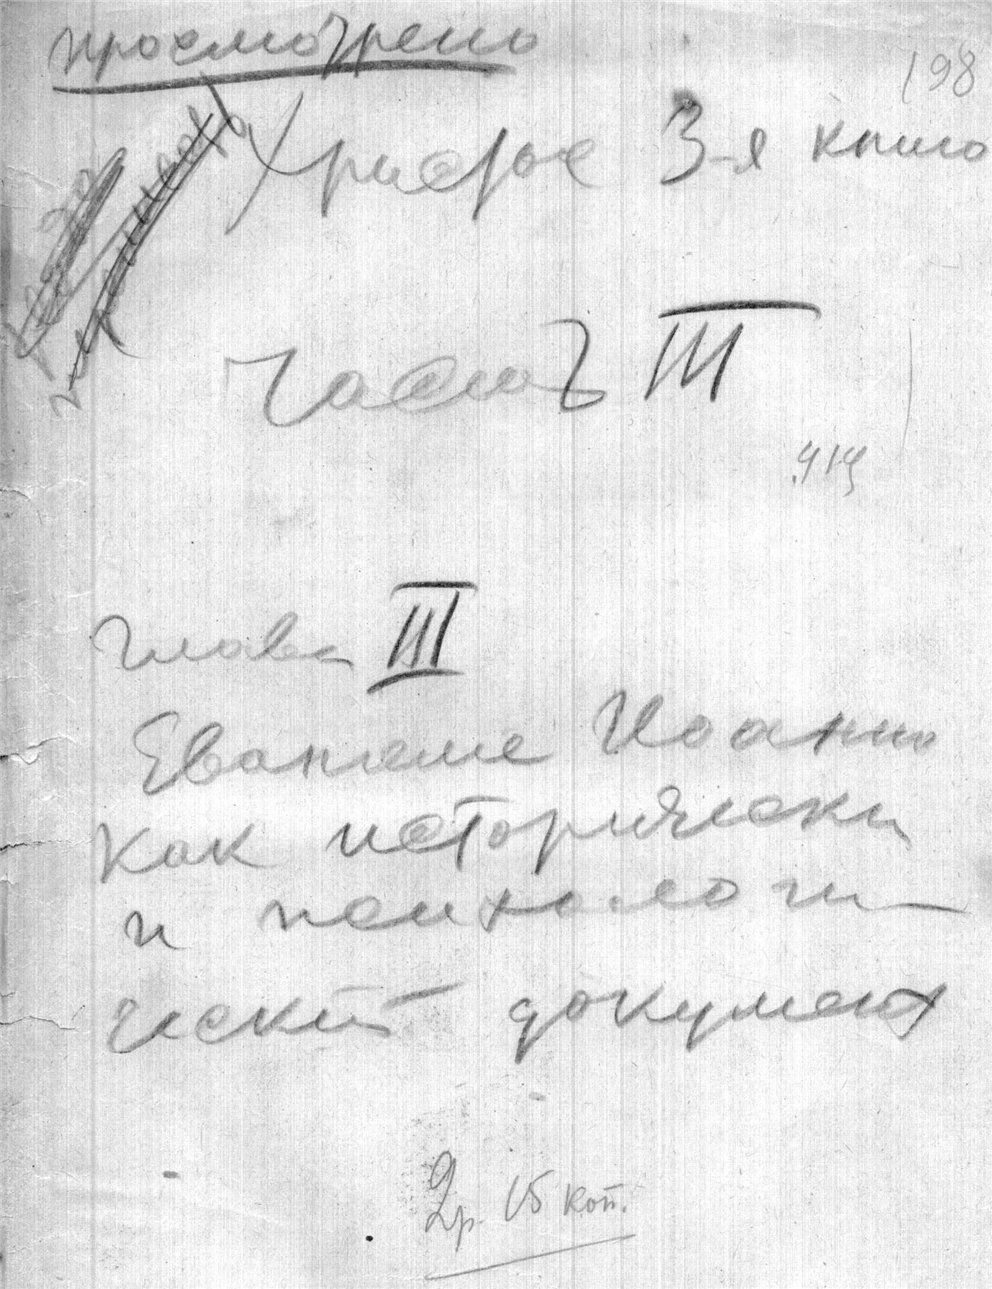 просмотрено
198
Христос 3-я книга
Часть III
глава III
Евангелие Иоанна
как исторически
и психологи-
ческий документ
2р. 15 коп.